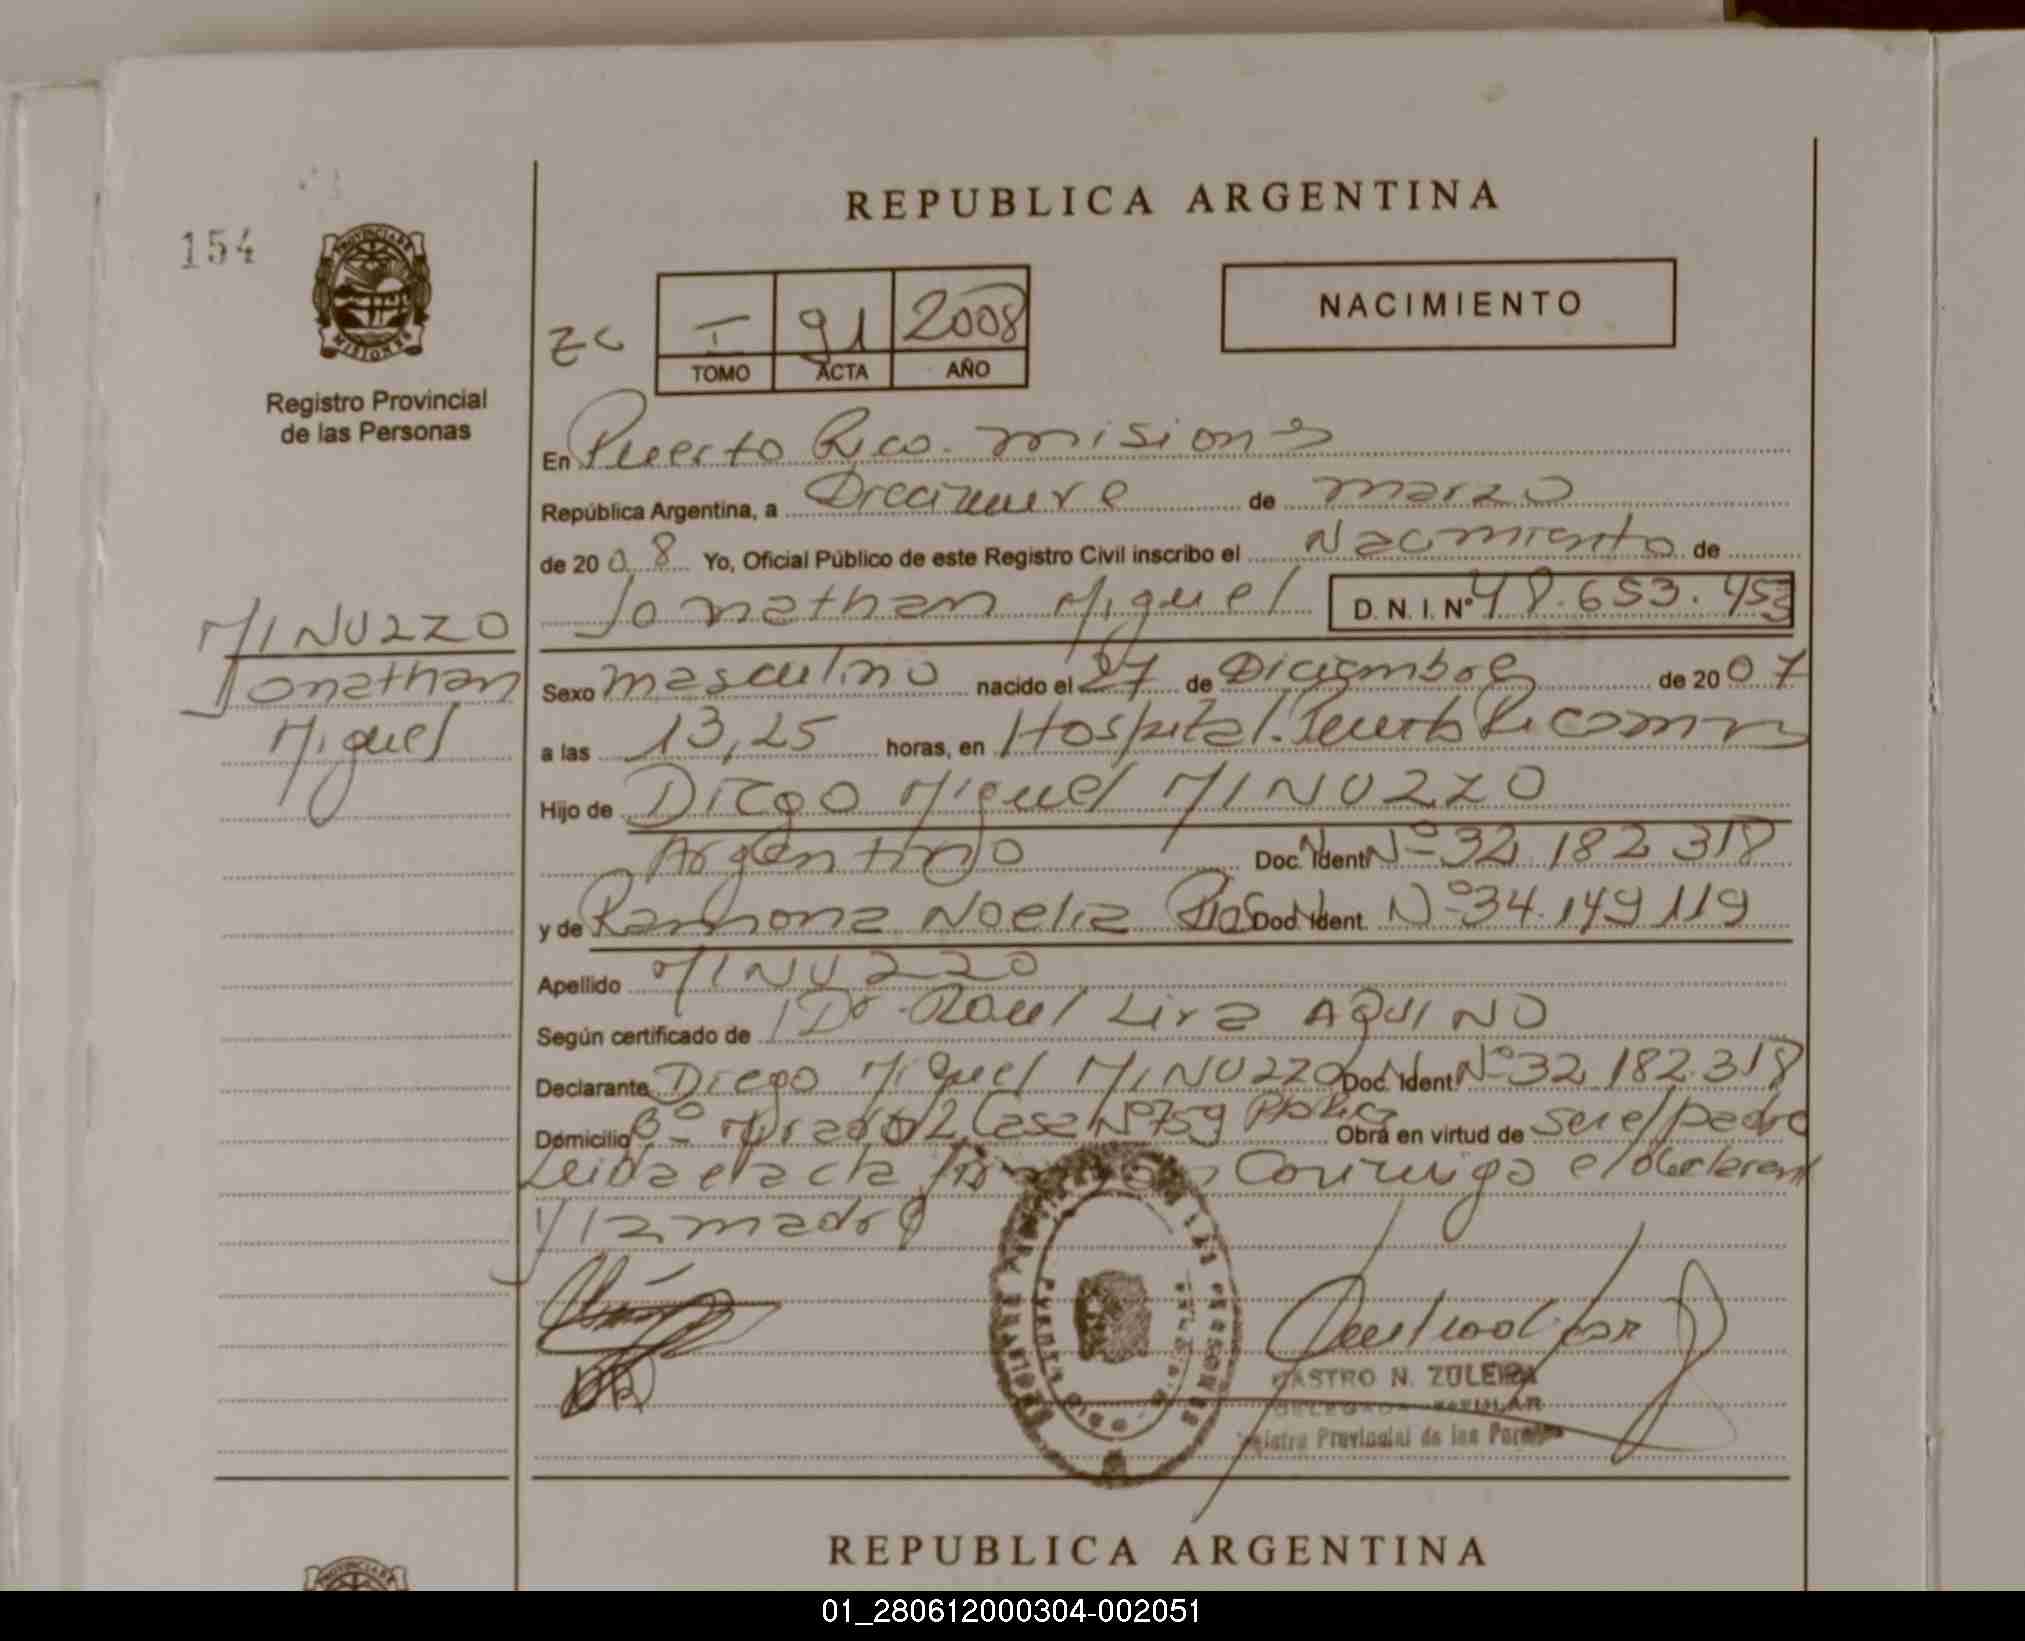 REPUBLICA ARGENTINA
154
PROVINCIA DE
MISIONES
Registro Provincial
de las Personas
NACIMIENTO
ZC I 91 2008
TOMO ACTA AÑO
En Puerto Rico - misiones
República Argentina, a Diecinueve de marzo
de 2008 Yo, Oficial Público de este Registro Civil inscribo el Nacimiento de
Jonathan Miguel D. N. I. Nº 48.653.453
MINUZZO
Jonathan
Miguel
Sexo masculino nacido el 27 de Diciembre de 2007
a las 13,25 horas, en Hospital. Puerto Rico
Hijo de Diego Miguel MINUZZO
Argentino Doc. Ident. Nº 32.182.318
y de Ramona Noelia Doc. Ident. Nº 34.149.119
Apellido MINUZZO
Según certificado de Dr. Raul Lira AQUINO
Declarante Diego Miguel MINUZZO Doc. Ident. Nº 32.182.318
Domicilio Bº Mirador 2 Casa Nº 759 Pto Rico Obra en virtud de ser el padre
Leida el acta conmigo el declarante
y la madre
CASTRO N. ZULEMA
DELEGADA TITULAR
Registro Provincial de las Personas
REPUBLICA ARGENTINA
01_280612000304-002051